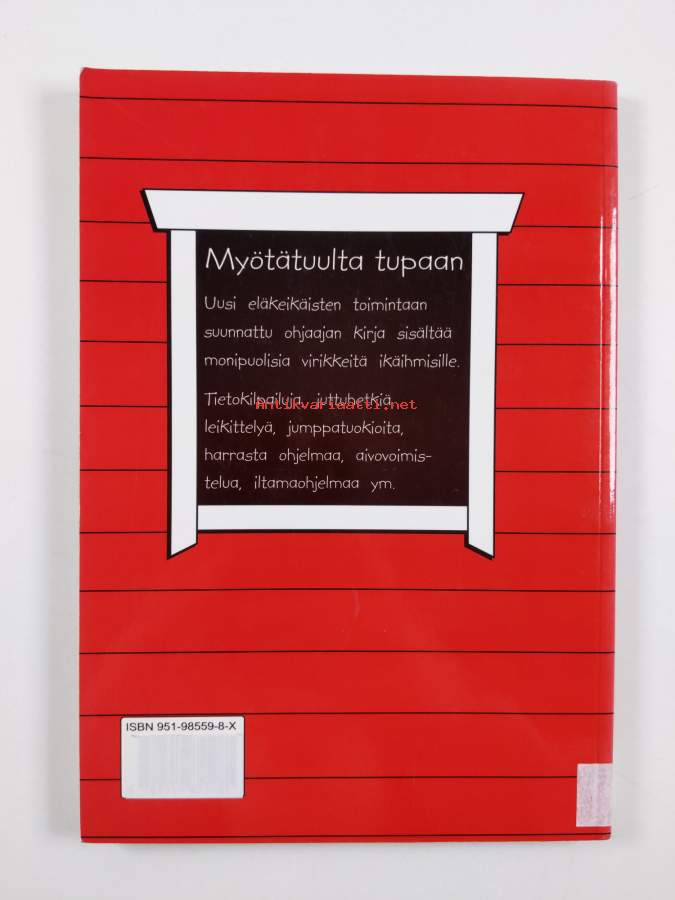 Myötätuulta tupaan
Uusi eläkeikäisten toimintaan
suunnattu ohjaajan kirja sisältää
monipuolisia virikkeitä ikäihmisille.
Tietokilpailuja, juttuhetkiä,
antikvariaatti.net
leikittelyä, jumppatuokioita,
harrasta ohjelmaa, aivovoimis-
telua, iltamaohjelmaa ym.
ISBN 951-98559-8-X